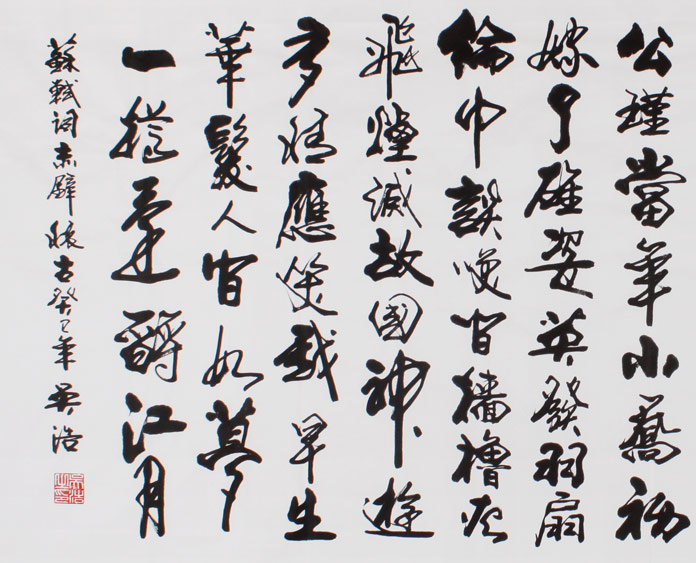 公瑾當年小喬初
嫁了雄姿英發羽扇
綸巾談咲間檣櫓灰
飛煙滅故國神遊
多情應笑我早生
華髮人間如夢
一樽還酹江月
蘇軾詞赤壁懷古癸巳年吳浩